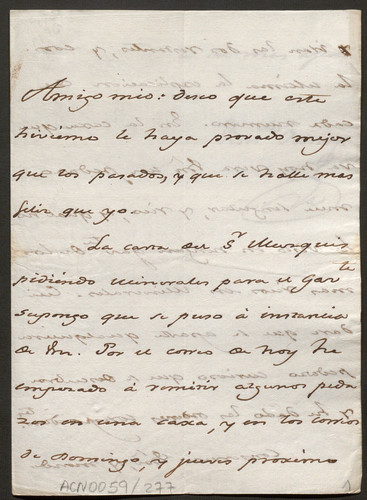 Amigo mio: deseo que este
hivierno le haya provado mejor
que los pasados, y que se halle mas
feliz que yo.
La carta del Sr. Marques
pidiendo minerales para el Gavte.
supongo que se puso á instancia
de Vm. Por el correo de hoy he
empezado á remitir algunos peda
zos en una caxa, y en los correos
de Domingo y jueves proximo
ACN0059/277
1